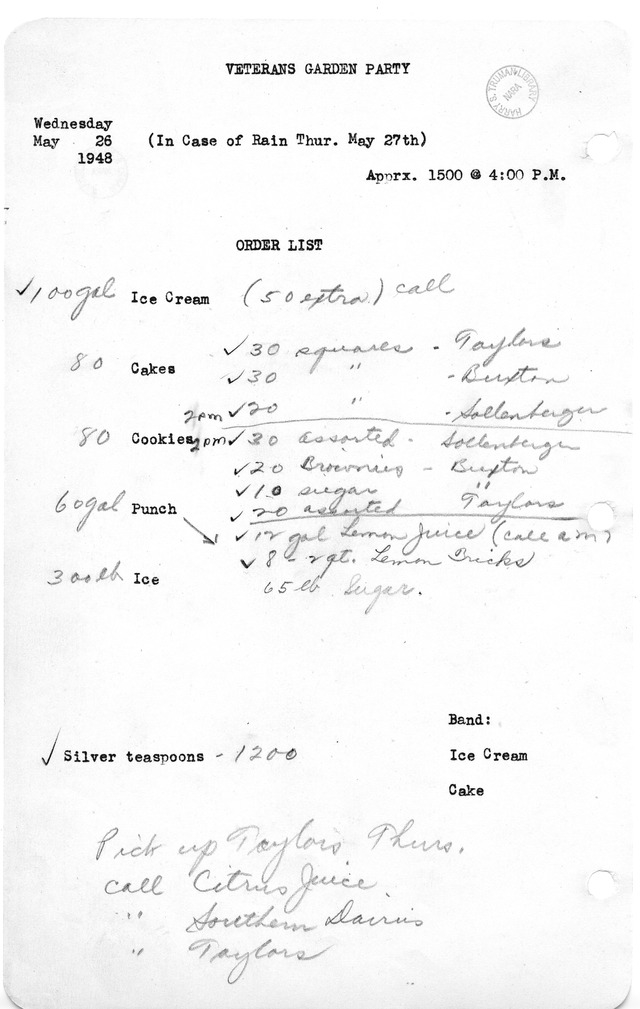 VETERANS GARDEN PARTY
HARRY S. TRUMAN LIBRARY
NARA
Wednesday
May 26 (In Case of Rain Thur. May 27th)
1948
Apprx. 1500 @ 4:00 P.M.
ORDER LIST
✓100 gal Ice Cream (50 extra) call
80 Cakes ✓30 squares - Taylors
✓30 " - Buxton
2pm ✓20 " - Sollenberger
80 Cookies 2pm ✓30 assorted - Sollenberger
✓20 Brownies - Buxton
✓10 sugar "
60 gal Punch ✓20 assorted Taylors
✓12 gal Lemon Juice (call a m)
✓8 - 2 qt. Lemon Bricks
300 lb Ice 65 lb Sugar.
Band:
✓ Silver teaspoons - 1200 Ice Cream
Cake
Pick up Taylors Thurs.
call Citrus Juice
" Southern Dairies
" Taylors